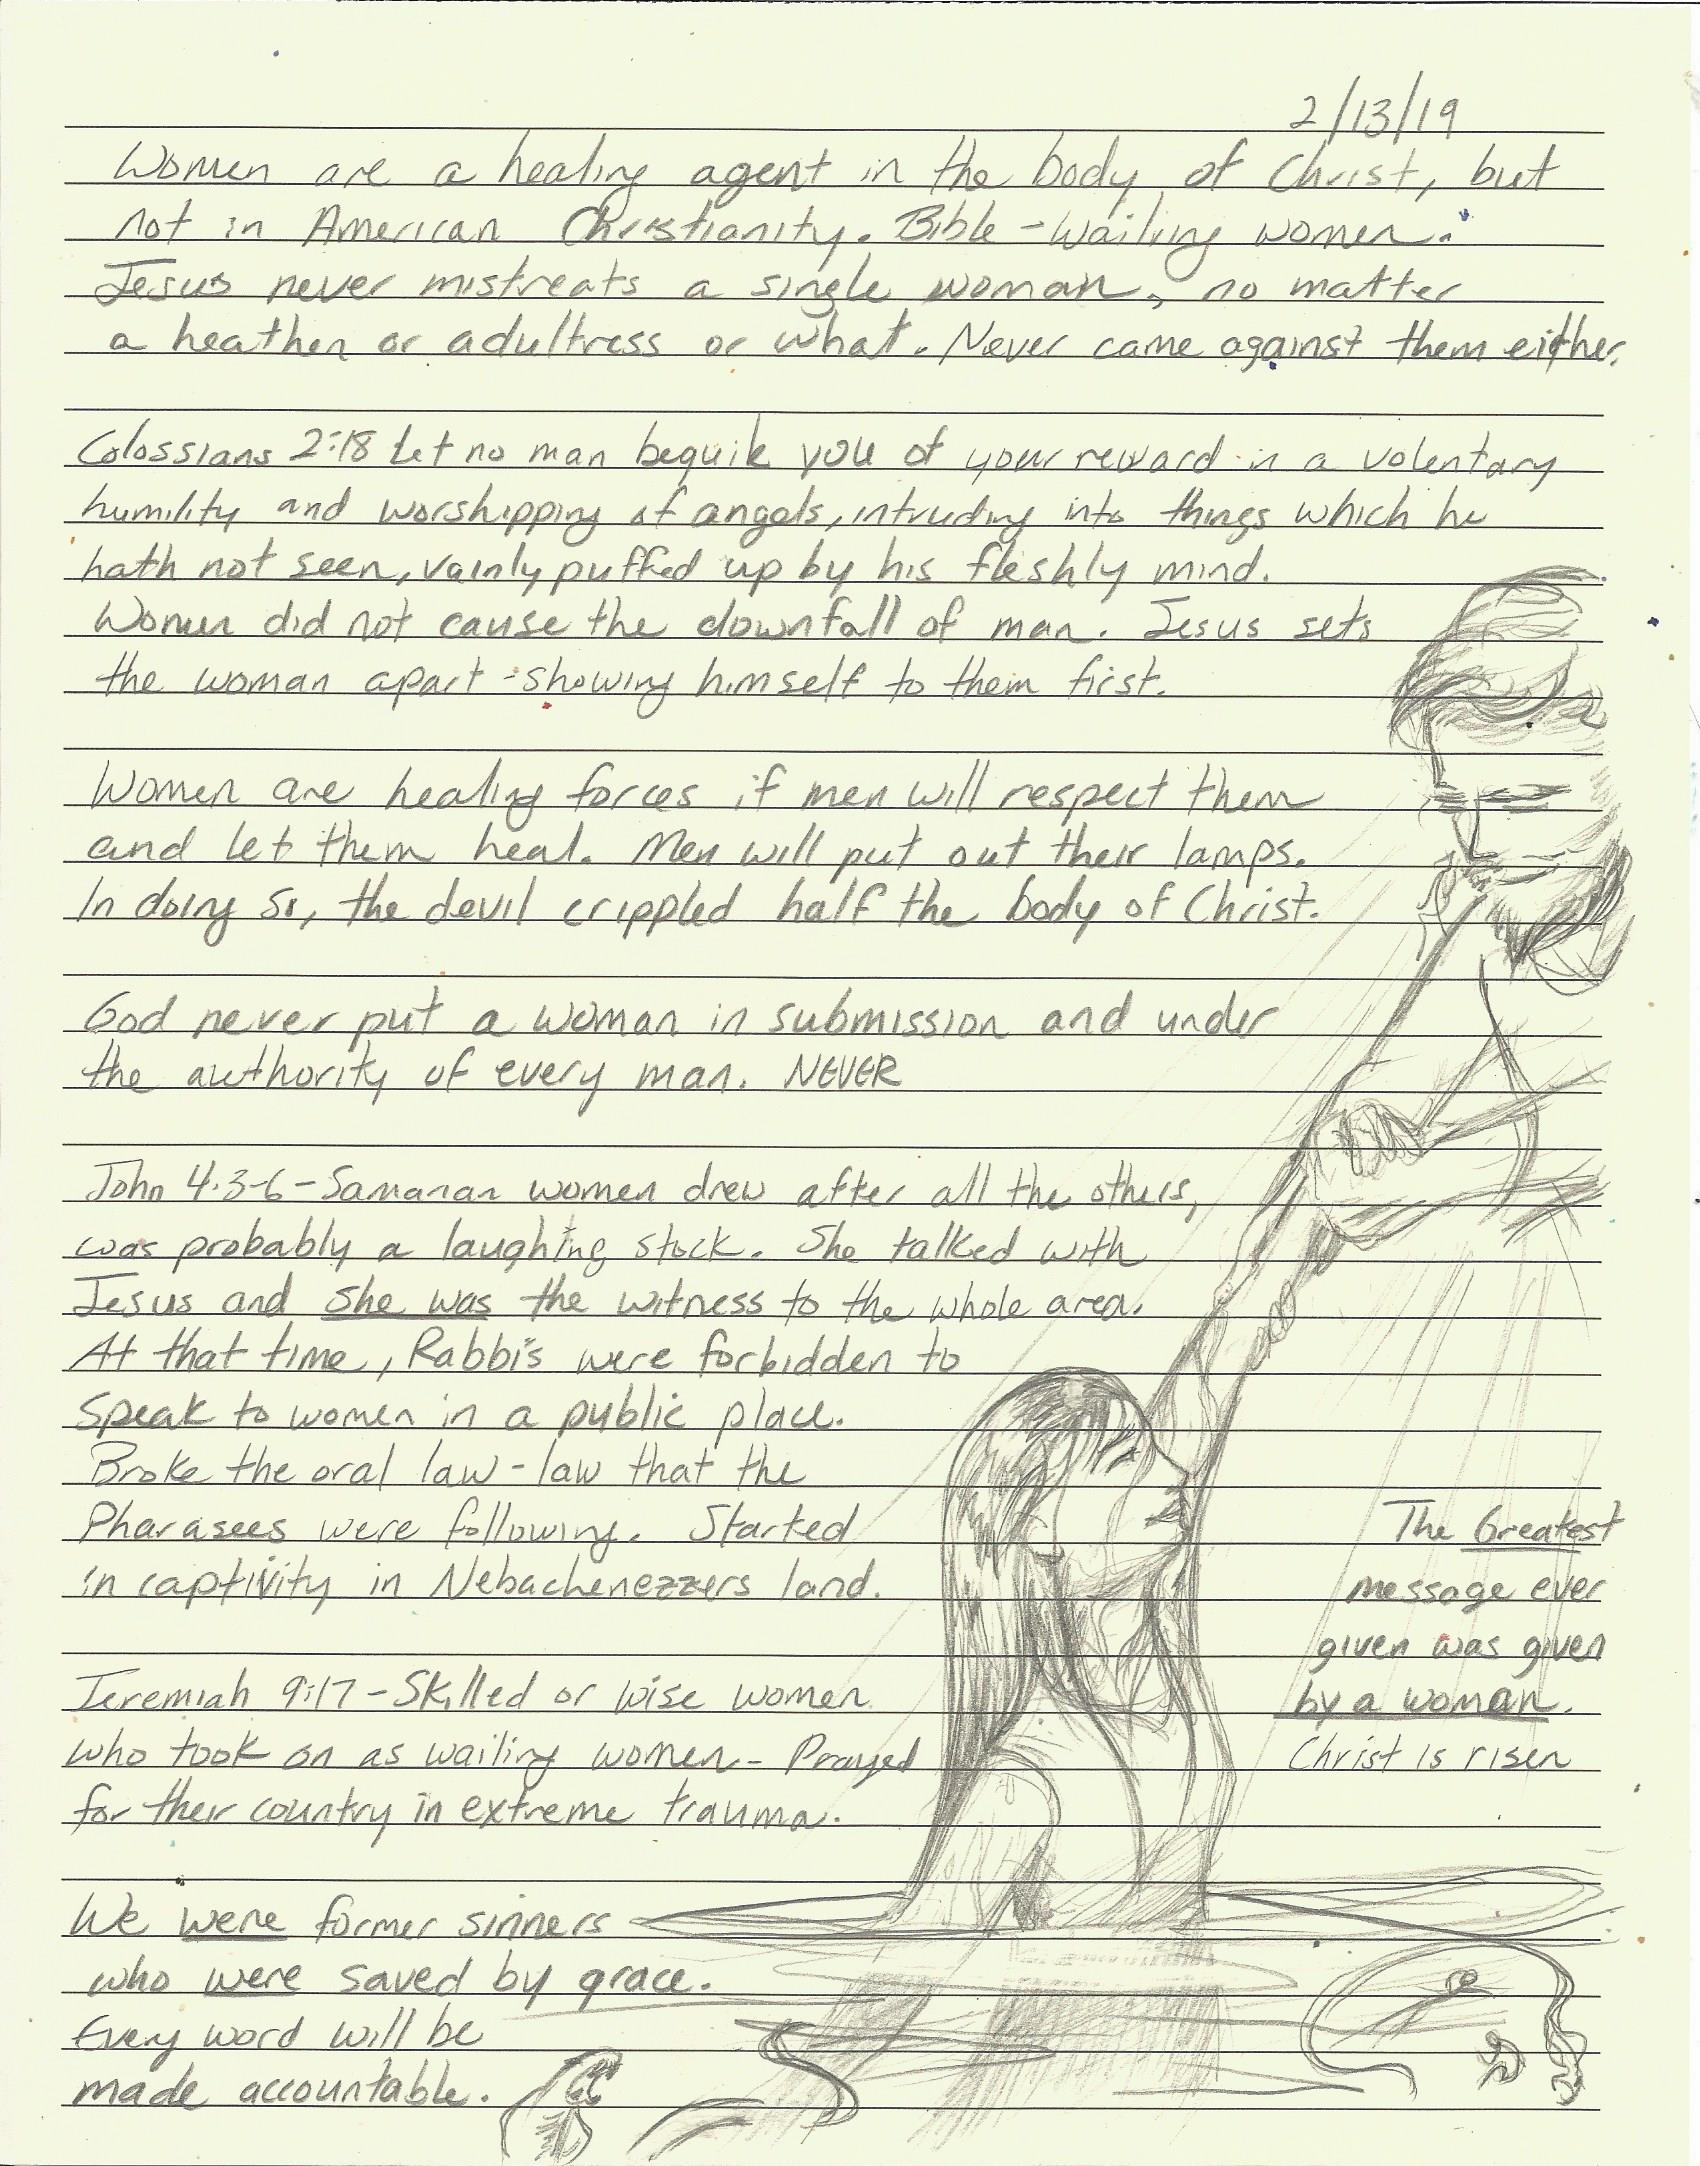 2/13/19
Women are a healing agent in the body of Christ, but
not in American Christianity. Bible - Wailing women.
Jesus never mistreats a single woman, no matter
a heathen or adultress or what. Never came against them either.
Colossians 2:18 Let no man beguile you of your reward in a volentary
humility and worshipping of angels, intruding into things which he
hath not seen, vainly puffed up by his fleshly mind.
Women did not cause the downfall of man. Jesus sets
the woman apart - showing himself to them first.
Women are healing forces if men will respect them
and let them heal. Men will put out their lamps.
In doing so, the devil crippled half the body of Christ.
God never put a woman in submission and under
the authority of every man. NEVER
John 4:3-6 - Samarian women drew after all the others,
was probably a laughing stock. She talked with
Jesus and she was the witness to the whole area.
At that time, Rabbi's were forbidden to
speak to women in a public place.
Broke the oral law - law that the
Pharasees were following. Started
in captivity in Nebachenezzers land.
Jeremiah 9:17 - Skilled or wise women
who took on as wailing women - Prayed
for their country in extreme trauma.
We were former sinners
who were saved by grace.
Every word will be
made accountable.
The Greatest
message ever
given was given
by a woman.
Christ is risen